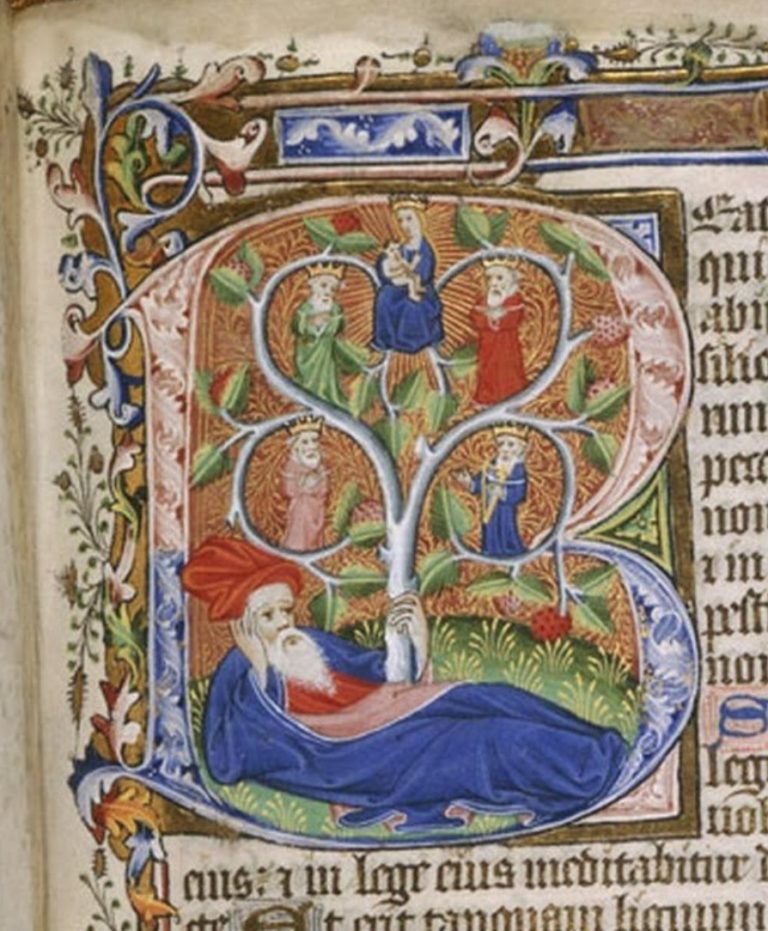 B eat
qui
abii
silio
rum
pecc
non
⁊ in
pesti
non
S
lege
uol
eius: ⁊ in lege eius meditabitur d
cte Et erit tanquam lignum